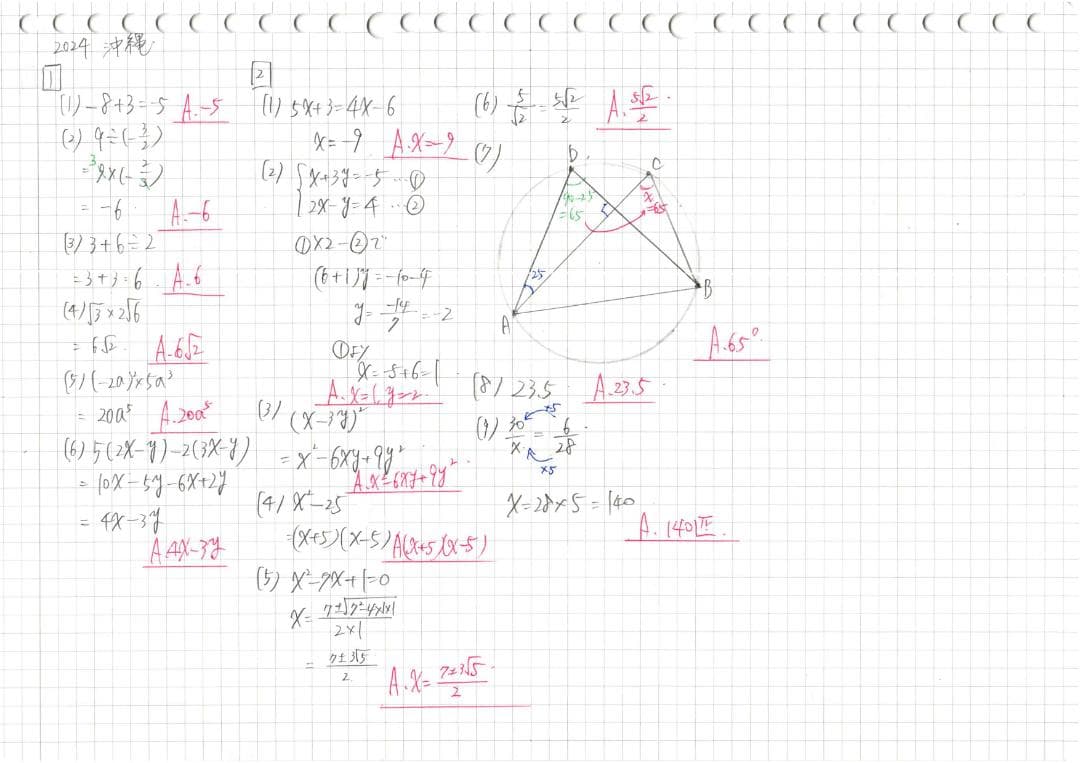 2024 沖縄
1
(1) -8+3=-5 A.-5
(2) 9÷(-3/2)
=³9×(-2/3)
=-6 A.-6
(3) 3+6÷2
=3+3=6 A.6
(4) √3×2√6
=6√2 A.6√2
(5) (-2a)²×5a³
=20a⁵ A.20a⁵
(6) 5(2x-y)-2(3x-y)
=10x-5y-6x+2y
=4x-3y
A.4x-3y
2
(1) 5x+3=4x-6
x=-9 A.x=-9
(2) { x+3y=-5 …①
2x-y=4 …②
①×2-②で
(6+1)y=-10-4
y=-14/7=-2
①より
x=-5+6=1
A.x=1, y=-2
(3) (x-3y)²
=x²-6xy+9y²
A.x²-6xy+9y²
(4) x²-25
=(x+5)(x-5) A(x+5)(x-5)
(5) x²-7x+1=0
x=7±√7²-4×1×1/2×1
=7±3√5/2
A.x=7±3√5/2
(6) 5/√2=5√2/2 A.5√2/2
(7)
D C
90-25
=65
x
=65
25
A B
A.65°
(8) 23.5 A.23.5
(9) 30/x=6/28
×5
×5
x=28×5=140
A.140匹